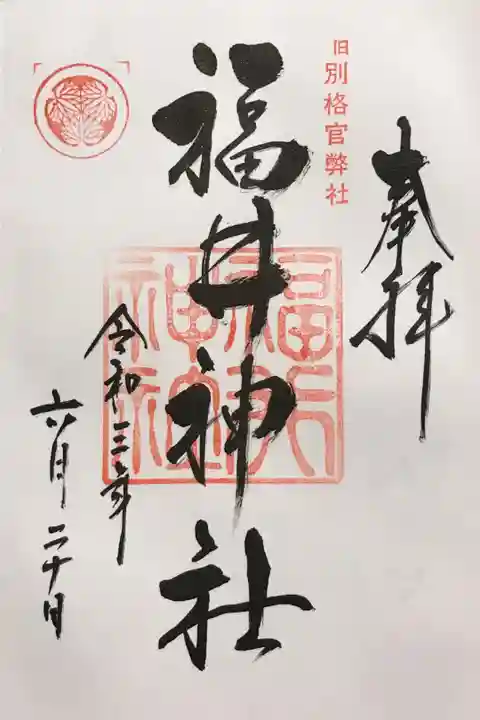 奉拝
旧別格官幣社
福井神社
福井神社
令和三年
六月二十日